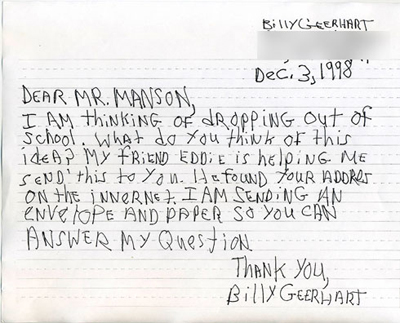 Billy GEERHART
Dec. 3, 1998
DEAR MR. MANSON,
I AM thinking OF dROPPING OUt OF
School. What do You think OF this
idEA? MY fRiEND EDDiE is hELPING ME
SEND this to You. HE fOUND YOUR ADDRES
ON thE iNNERNET. I AM SENDING AN
ENVElOPE AND PAPER SO YOU CAN
ANSWER MY QuEstioN.
THANK YOU,
Billy GEERHART